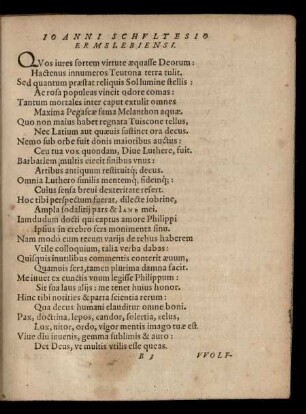 IOANNI SCHVLTESIO
ERMSLEBIENSI.
QVos iures sortem virtute æquasse Deorum:
Hactenus innumeros Teutona terra tulit.
Sed quantum præstat reliquis Sol lumine stellis:
Ac rosa populeas vincit odore comas:
Tantum mortales inter caput extulit omnes
Maxima Pegaseæ fama Melanthon aquæ.
Quo non maius habet regnata Tuiscone tellus,
Nec Latium aut quæuis sustinet ora decus.
Nemo sub orbe fuit donis maioribus auctus:
Ceu tua vox quondam, Diue Luthere, fuit.
Barbariem multis eiecit finibus vnus:
Artibus antiquum restituitq; decus.
Omnia Luthero similis mentemq; fidemq;:
Cuius sensa breui dexteritate refert.
Hoc tibi perspectum fuerat, dilecte Iobrine,
Ampla sodalitij pars & IANE mei.
Iamdudum docti qui captus amore Philippi
Ipsius in crebro fers monimenta sinu.
Nam modo cum tecum varijs de rebus haberem
Vtile colloquium, talia verba dabas:
Quisquis inutilibus commenti conterit æuum,
Quamuis sera, tamen plurima damna facit.
Me iuuet ex cunctis vnum legisse Philippum:
Sit sua laus alijs: me tenet huius honor.
Hinc tibi notities & parta scientia rerum:
Qua decus humani clauditur omne boni.
Pax, doctrina, lepos, candor, solertia, zelus,
Lux, nitor, ordo, vigor mentis imago tuæ est.
Viue diu iuuenis, gemma sublimis & auro:
Det Deus, vt multis vtilis esse queas.
B 3 VVOLF-